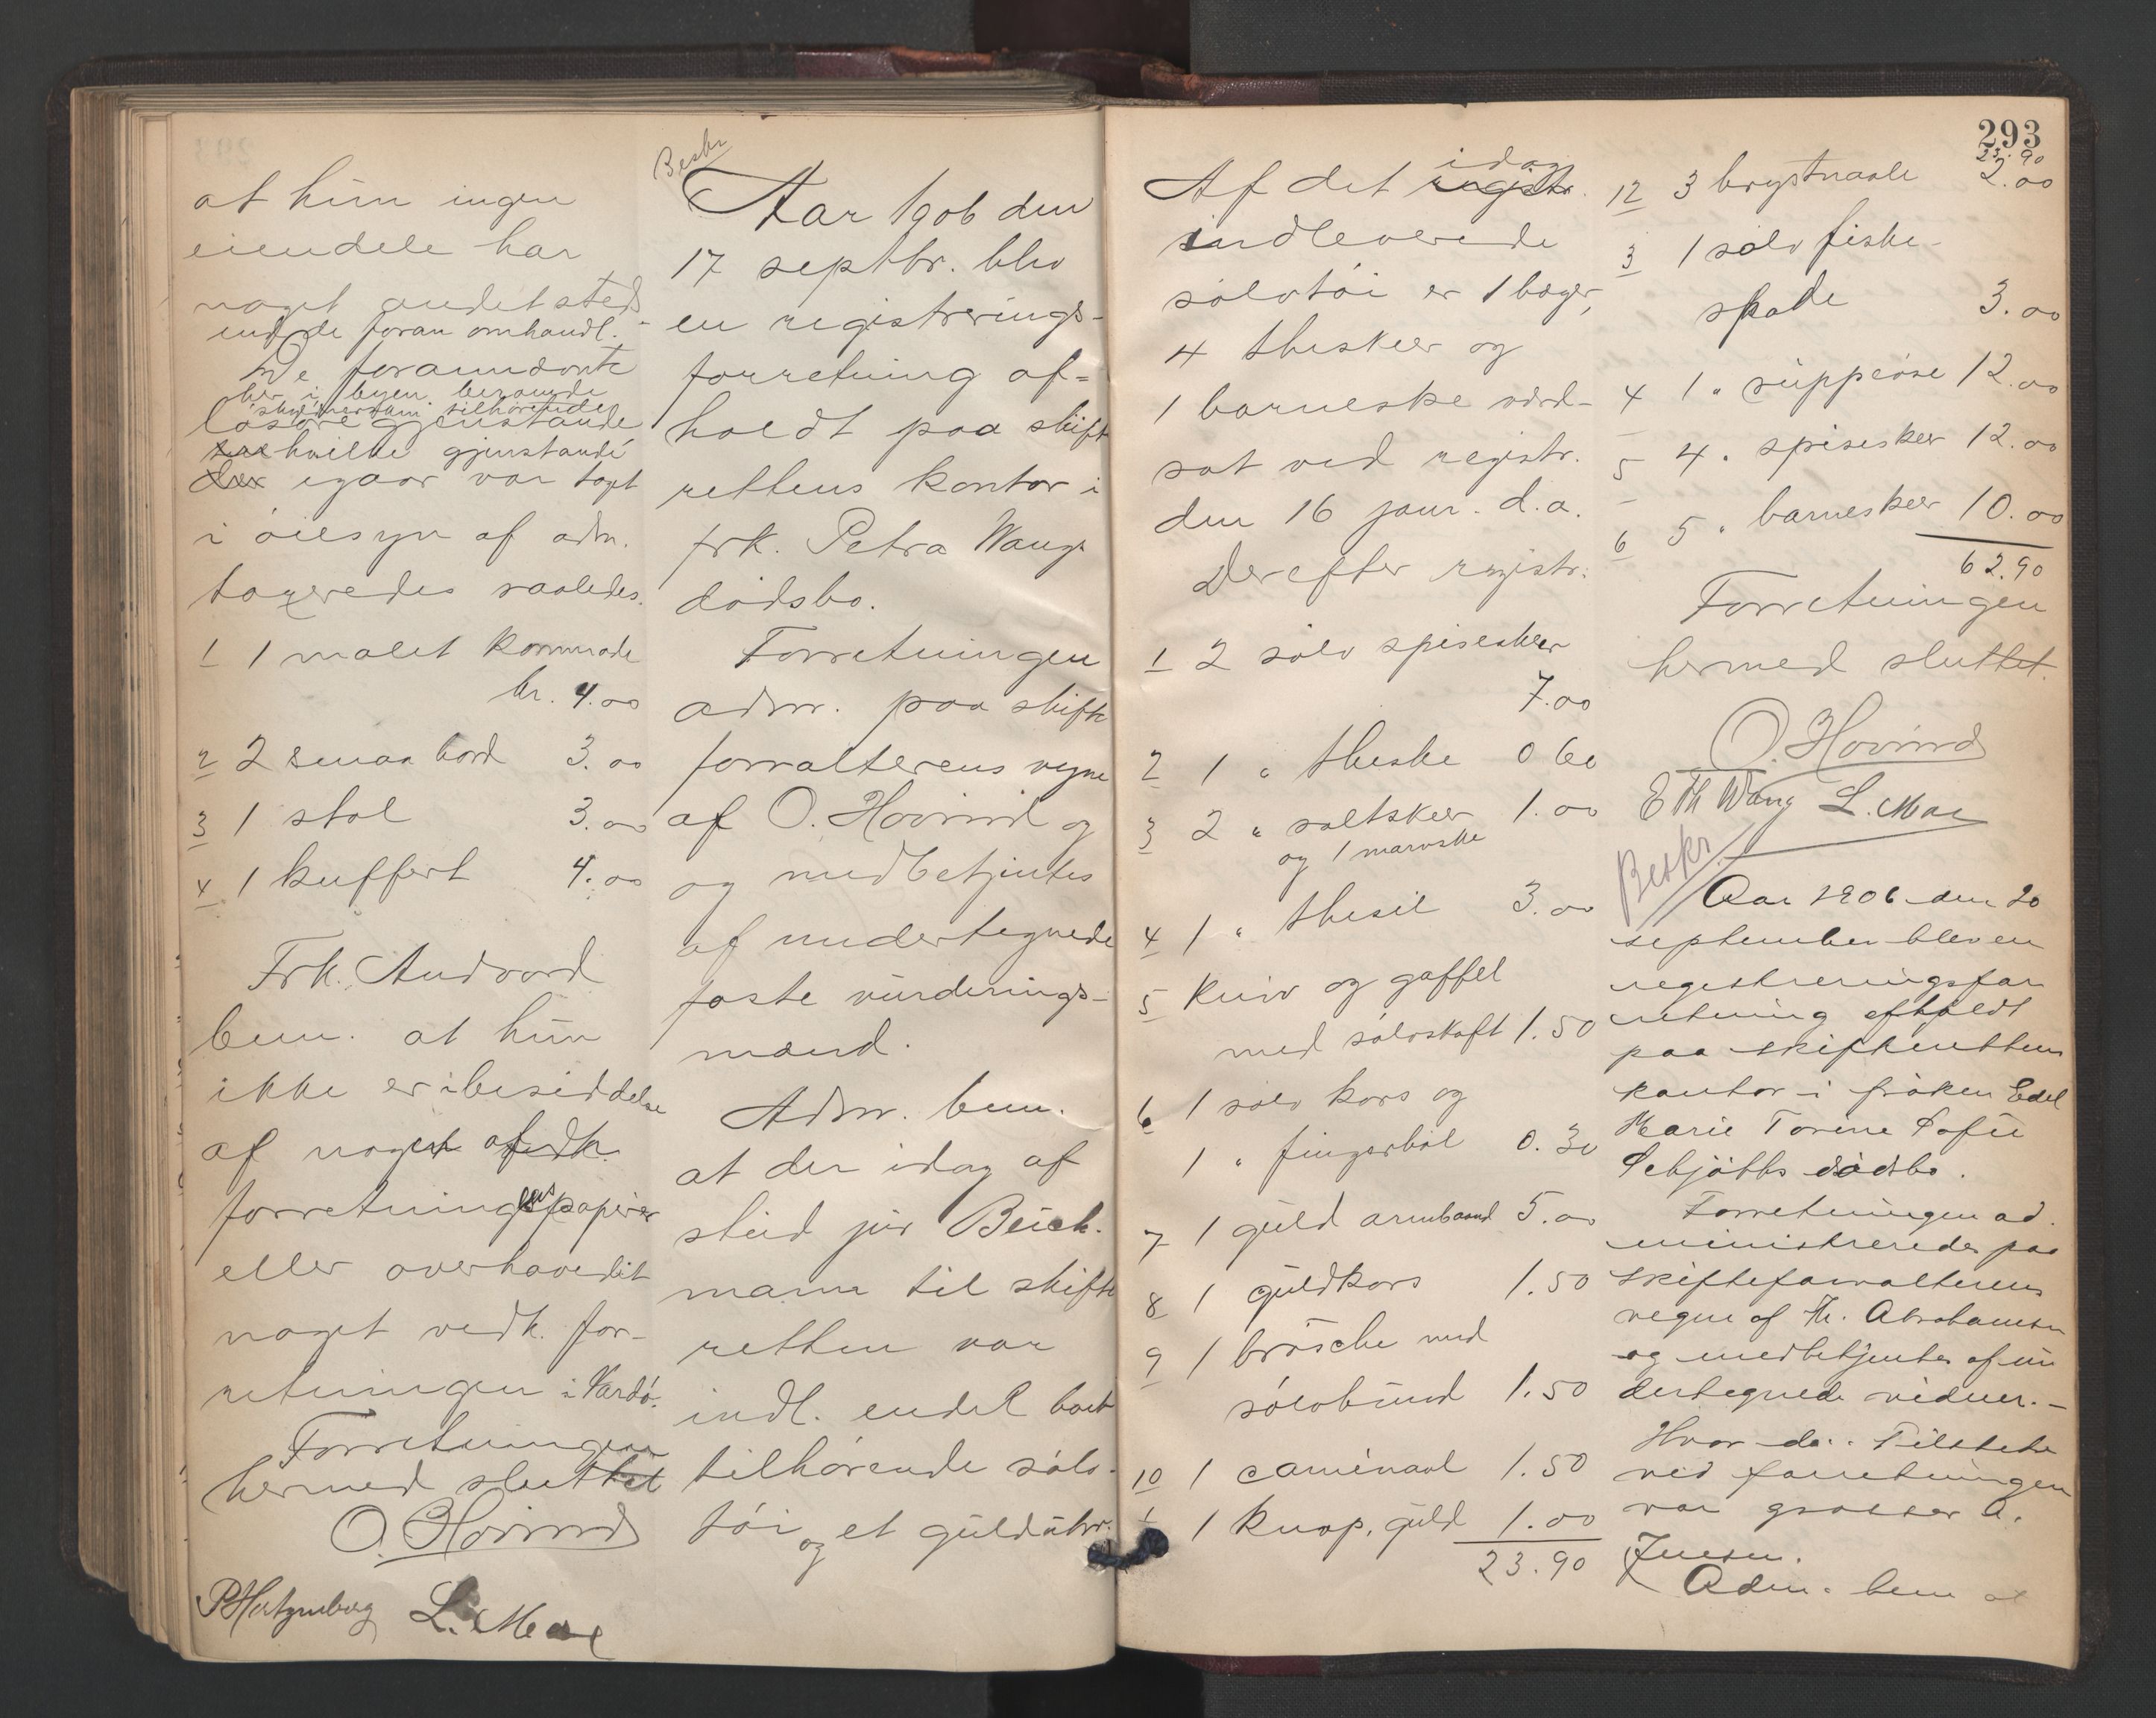 at hun ingen
eiendele har
noget andetsteds
end de foran omhandl.
De forannævnte
her i byen beroende
tilhørende
løsøregjenstande
hvilke gjenstande
igaar var tagt
i øiesyn af adm.
taxeredes saaledes.
1 1 malet kommode
kr. 4.00
2 2 smaa bord 3.00
3 1 stol 3.00
4 1 kuffert 4.00
Frk. Andvord
bem. at hun
ikke er i besiddelse
af noget af dk.
forretningspapirer
eller overhovedet
noget vedk. for-
retningen i Vardø.
Forretningen
hermed sluttet
O. Hovind
P Hertzenberg L. Moe
Beskr
Aar 1906 den
17 septbr. blev
en registrerings-
forretning af-
holdt paa skift
rettens kontor i
frk. Petra Wangs
dødsbo.
Forretningen
adm. paa skifte
forvalterens vegne
af O. Hovind og
og medbetjentes
af undertegnede
faste vurderings-
mænd.
Adm. bem.
at der idag af
stud jur Beich-
mann til skifte
retten var
indl. endel boet
tilhørende sølv-
tøi og et guldúhr.
293
Af det idag registr.
indleverede
sølvtøi er 1 bæger,
4 theskeer og
1 barneske vurd-
sat ved registr.
den 16 janr. d.a.
Derefter registr:
1 2 sølv spiseskeer
7.00
2 1 " theske 0 60
3 2 " saltskeer 1.00
og 1 marvske
4 1 " thesil 3.00
5 Kniv og gaffel
med sølvskaft 1.50
6 1 sølv kors og
1 " fingerbøl 0.30
7 1 guld armbaand 5.00
8 1 guldkors 1.50
9 1 brosche med
sølvbund 1.50
10 1 camenaal 1.50
1 1 knap, guld 1.00
23.90
23.90
12 3 brystnaale 2.00
3 1 sølv fiske-
spade 3.00
4 1 " suppeøse 12.00
5 4 " spiseskeer 12.00
6 5 " barneskeer 10.00
62.90
Forretningen
hermed sluttet.
O. Hovind
E Th Wang L. Moe
Beskr
Aar 1906 den 20
september blev en
registreringsfor
retning afholdt
paa skifterettens
kontor i frøken Edel
Marie Torine Sofie
Schjøtts dødsbo.
Forretningen ad.
ministreredes paa
skifteforvalterens
vegne af Th. Abrahamsen
og medbetjentes af un
dertegnede vidner.-
Hvor da: Tilstede
ved forretningen
var grosser A.
Jensen.
Adm. bem at